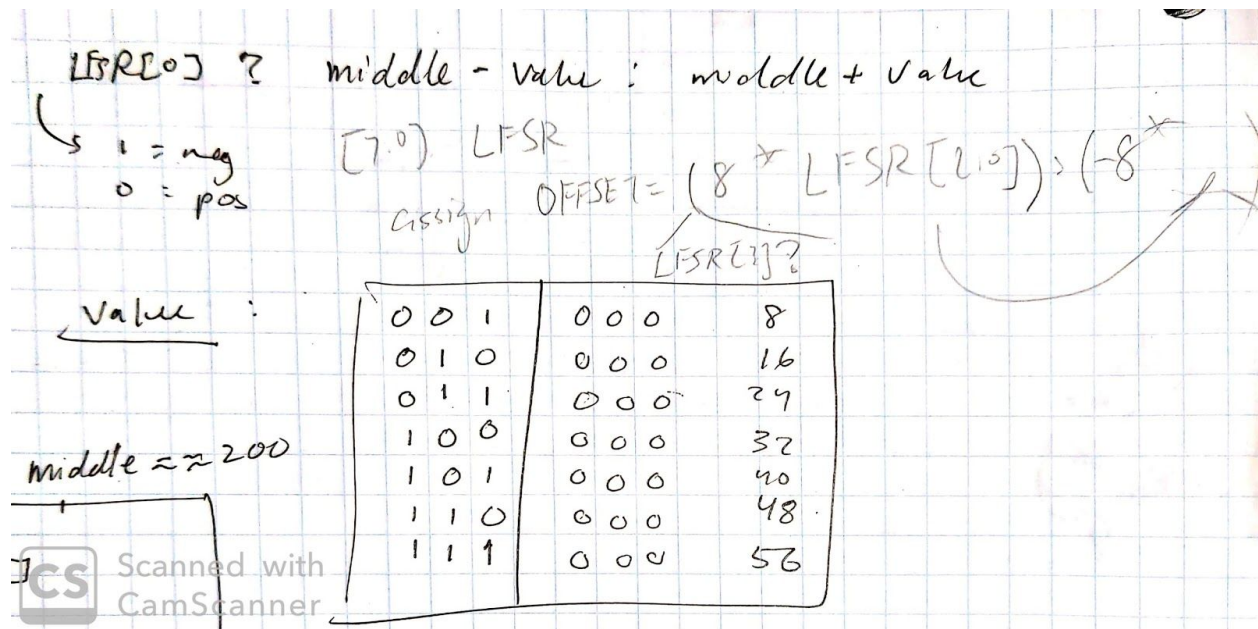 LFSR[0] ? middle - value : middle + value
1 = neg
0 = pos
[7:0] LFSR
assign OFFSET = (8 * LFSR[2:0]) : (-8 *
LFSR[3]?
value :
0 0 1 0 0 0 8
0 1 0 0 0 0 16
0 1 1 0 0 0 24
1 0 0 0 0 0 32
1 0 1 0 0 0 40
1 1 0 0 0 0 48
1 1 1 0 0 0 56
middle = ≈ 200
]
CS Scanned with
CamScanner